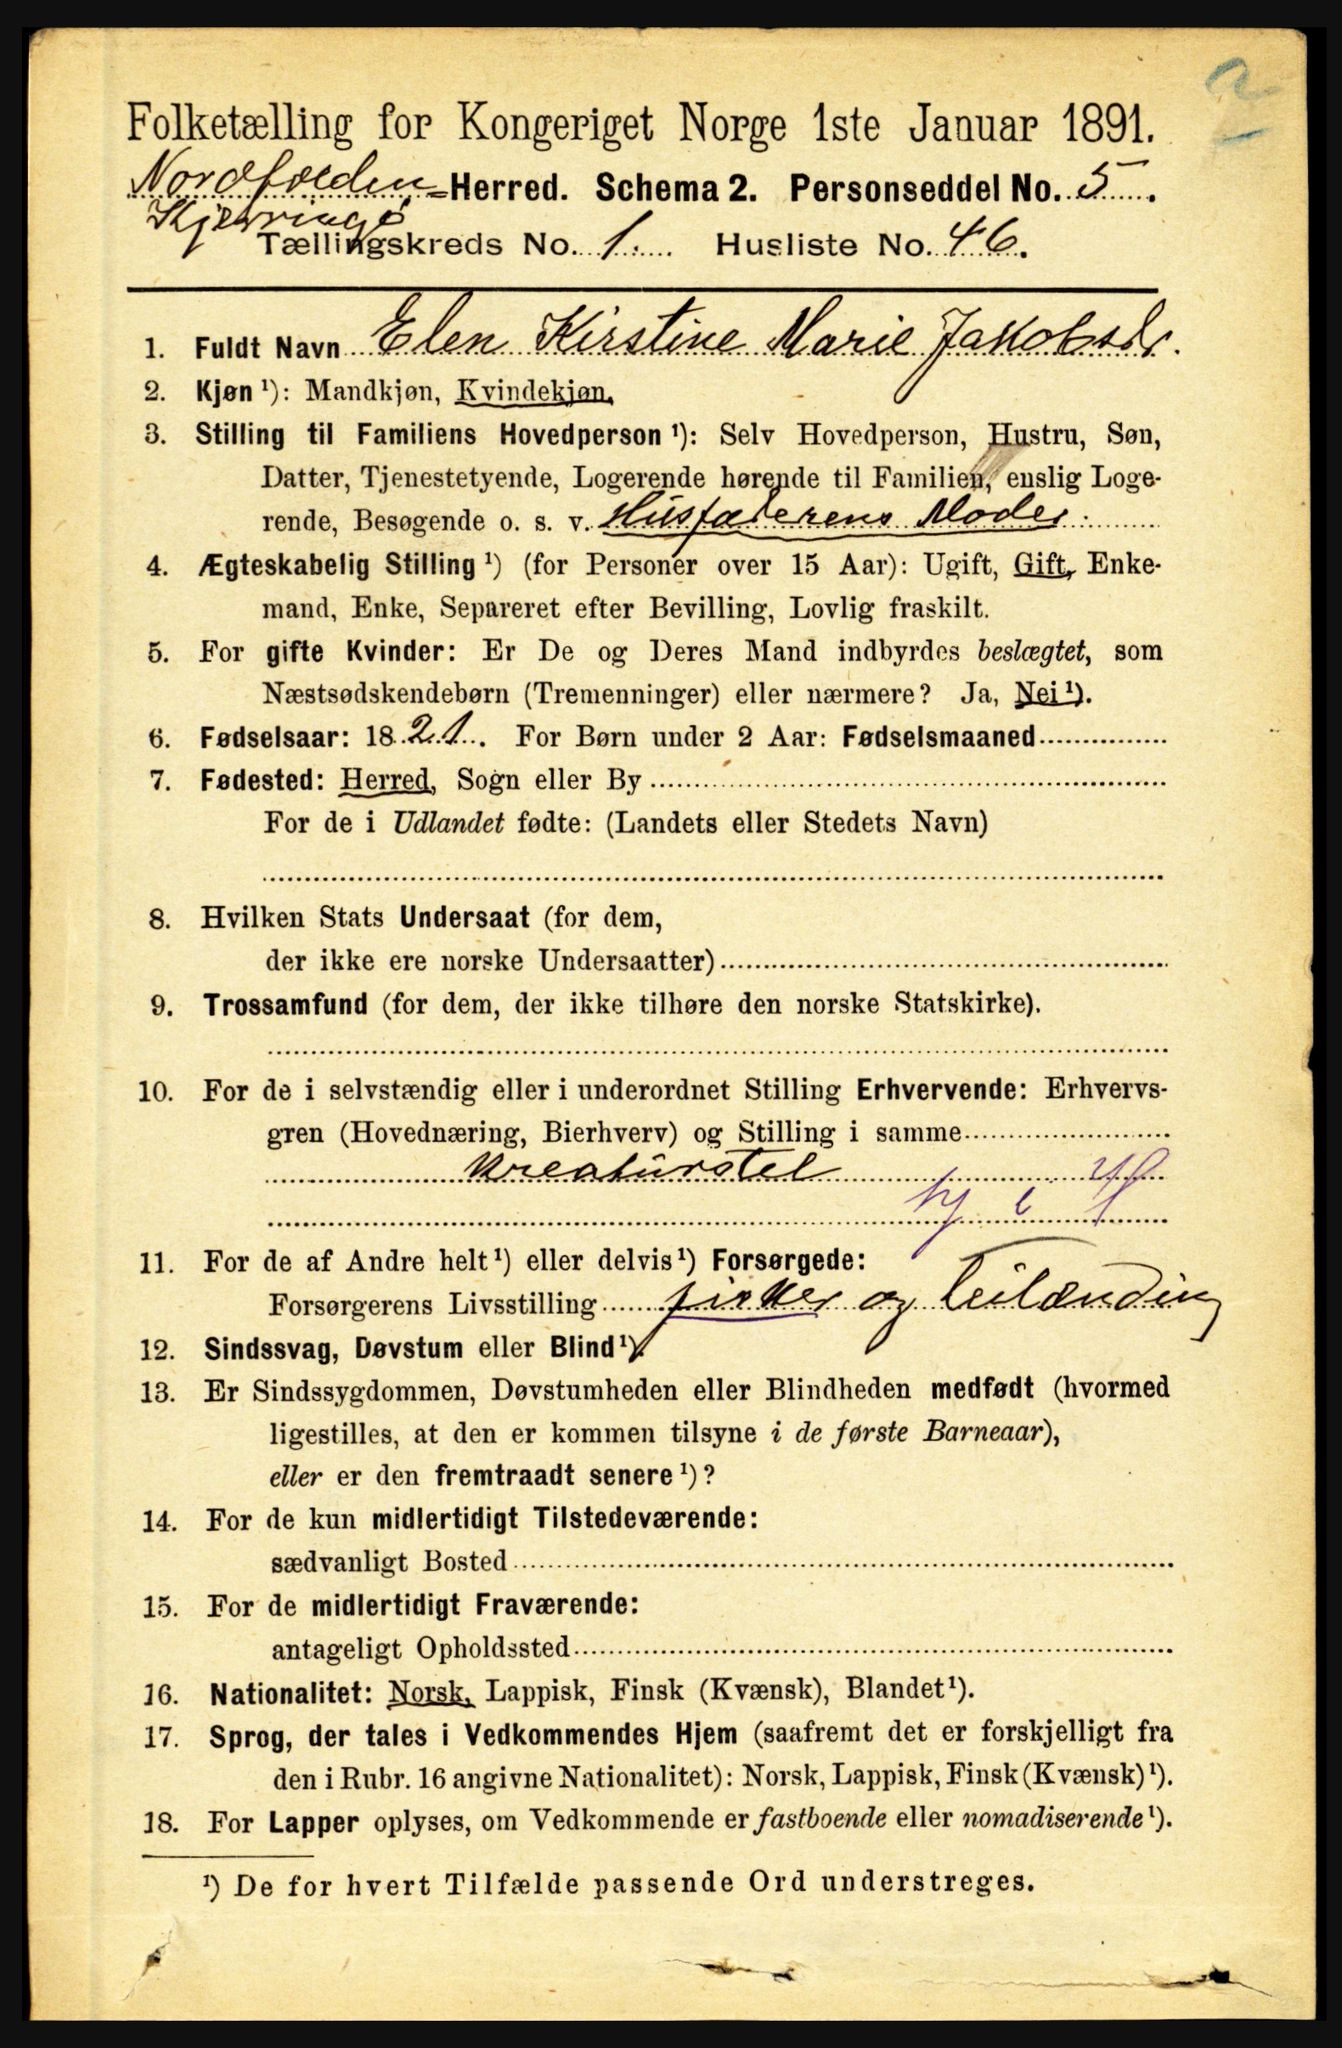 2
Folketælling for Kongeriget Norge 1ste Januar 1891.
Nordfolden- Herred. Schema 2. Personseddel No. 5.
Kjerringø
Tællingskreds No. 1. Husliste No. 46.
1. Fuldt Navn Elen Kirstine Marie Jakobsdr.
2. Kjøn ¹): Mandkjøn, Kvindekjøn.
3. Stilling til Familiens Hovedperson ¹): Selv Hovedperson, Hustru, Søn,
Datter, Tjenestetyende, Logerende hørende til Familien, enslig Loge-
rende, Besøgende o. s. v. Husfaderens Moder
4. Ægteskabelig Stilling ¹) (for Personer over 15 Aar): Ugift, Gift, Enke-
mand, Enke, Separeret efter Bevilling, Lovlig fraskilt.
5. For gifte Kvinder: Er De og Deres Mand indbyrdes beslægtet, som
Næstsødskendebørn (Tremenninger) eller nærmere? Ja, Nei ¹).
6. Fødselsaar: 1821. For Børn under 2 Aar: Fødselsmaaned
7. Fødested: Herred, Sogn eller By
For de i Udlandet fødte: (Landets eller Stedets Navn)
8. Hvilken Stats Undersaat (for dem,
der ikke ere norske Undersaatter)
9. Trossamfund (for dem, der ikke tilhøre den norske Statskirke).
10. For de i selvstændig eller i underordnet Stilling Erhvervende: Erhvervs-
gren (Hovednæring, Bierhverv) og Stilling i samme
Kreaturstel
11. For de af Andre helt ¹) eller delvis ¹) Forsørgede:
Forsørgerens Livsstilling fisker og Leilænding
12. Sindssvag, Døvstum eller Blind ¹).
13. Er Sindssygdommen, Døvstumheden eller Blindheden medfødt (hvormed
ligestilles, at den er kommen tilsyne i de første Barneaar),
eller er den fremtraadt senere ¹)?
14. For de kun midlertidigt Tilstedeværende:
sædvanligt Bosted
15. For de midlertidigt Fraværende:
antageligt Opholdssted
16. Nationalitet: Norsk, Lappisk, Finsk (Kvænsk), Blandet ¹).
17. Sprog, der tales i Vedkommendes Hjem (saafremt det er forskjelligt fra
den i Rubr. 16 angivne Nationalitet): Norsk, Lappisk, Finsk (Kvænsk) ¹).
18. For Lapper oplyses, om Vedkommende er fastboende eller nomadiserende ¹).
¹) De for hvert Tilfælde passende Ord understreges.